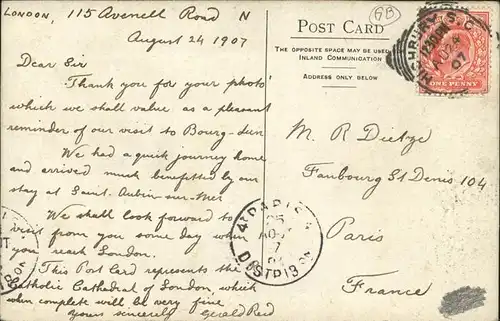 LONDON, 115 Avenell Road N
August 24 1907
Dear Sir
Thank you for your photo
which we shall value as a pleasant
reminder of our visit to Bourg-dun
We had a quick journey home
and arrived much benefitted by our
stay at Saint. Aubin-sur-Mer
We shall look forward to
visit from you some day when
you reach London.
This Post Card represents the
Catholic Cathedral of London, which
when complete will be very fine
Yours sincerely Gerald Reid
GB
POST CARD
THE OPPOSITE SPACE MAY BE USED
INLAND COMMUNICATION
ADDRESS ONLY BELOW
ONE PENNY
M. R Dietze
Faubourg St Denis 104
Paris
France
PARIS
25
DISTRION